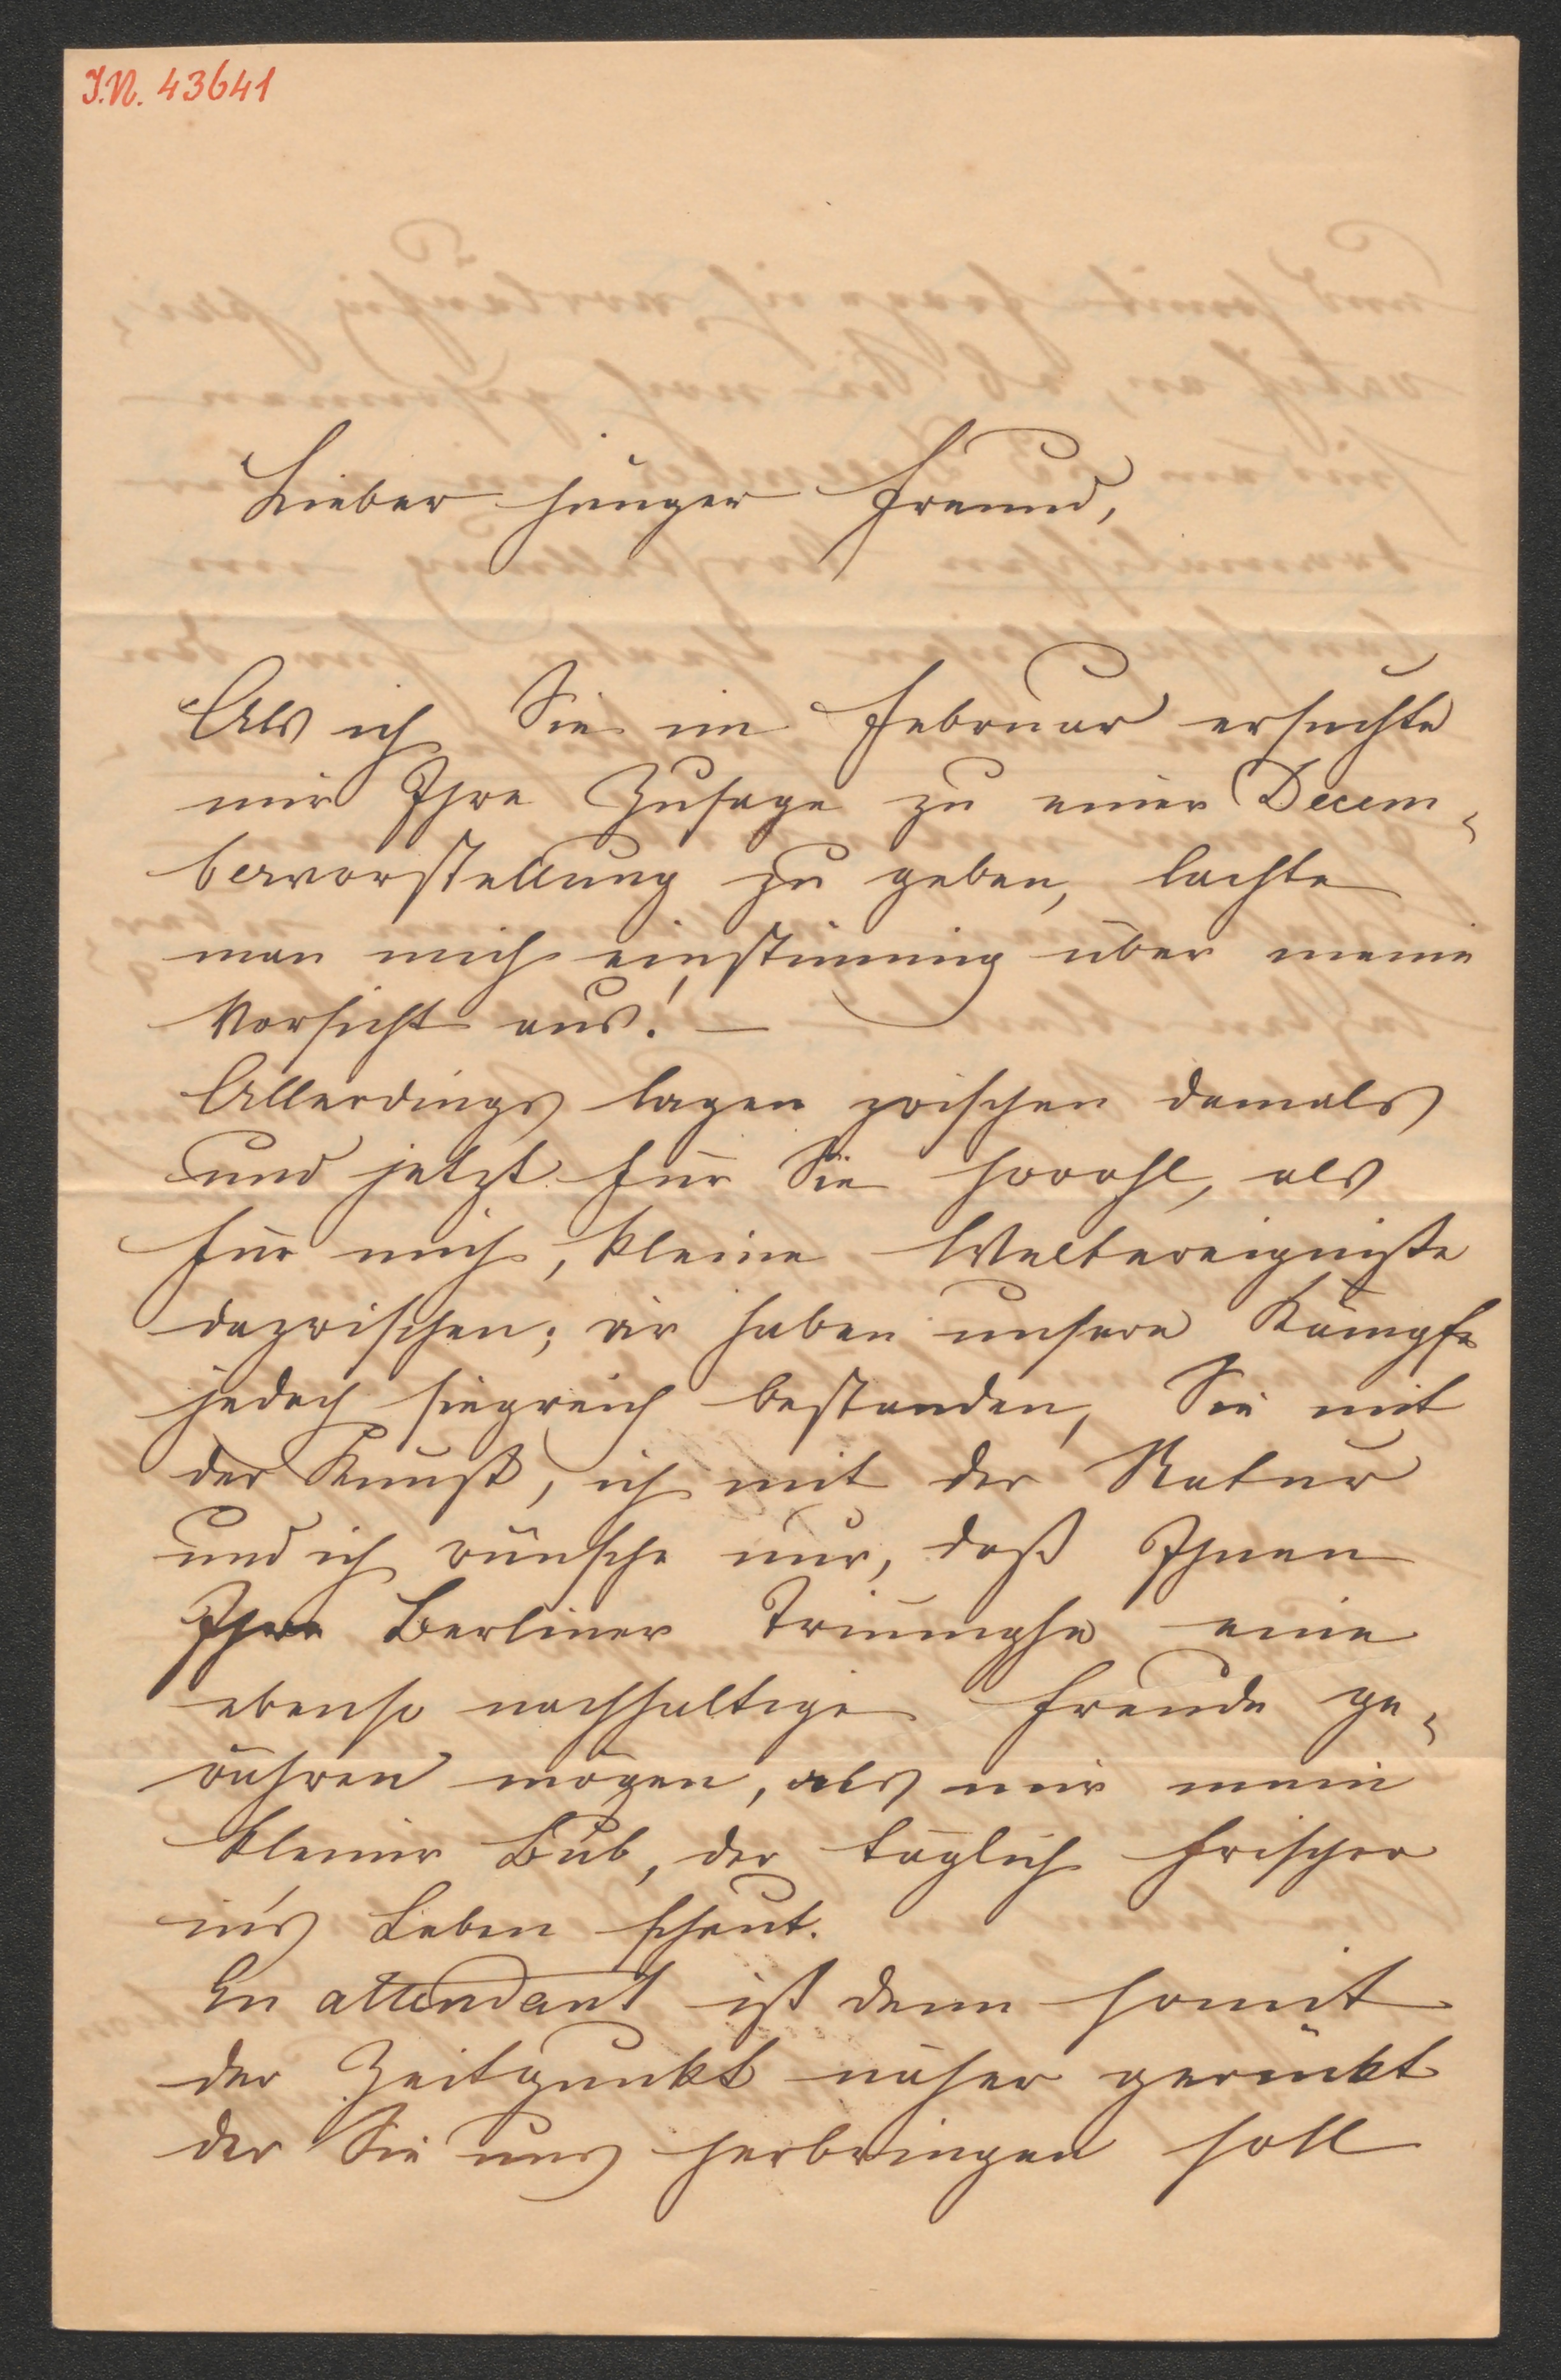 I.N. 43641
Lieber junger Freund,
Als ich Sie im Februar ersuchte
mir Ihre Zusage zu einer Decem-
bervorstellung zu geben, lachte
man mich einstimmig über meine
Vorsicht aus! —
Allerdings lagen zwischen damals
und jetzt für Sie sowohl, als
für mich, kleine Weltereigniße
dazwischen; wir haben unsere Kämpfe
jedoch siegreich bestanden, Sie mit
der Kunst, ich mit der Natur
und ich wünsche nur, daß Ihnen
Ihre Berliner Triumphe eine
ebenso nachhaltige Freude ge-
währen mögen, als mir mein
kleiner Bub, der täglich frischer
in's Leben schaut.
En attendant ist denn somit
der Zeitpunkt näher gerückt
der Sie uns herbringen soll